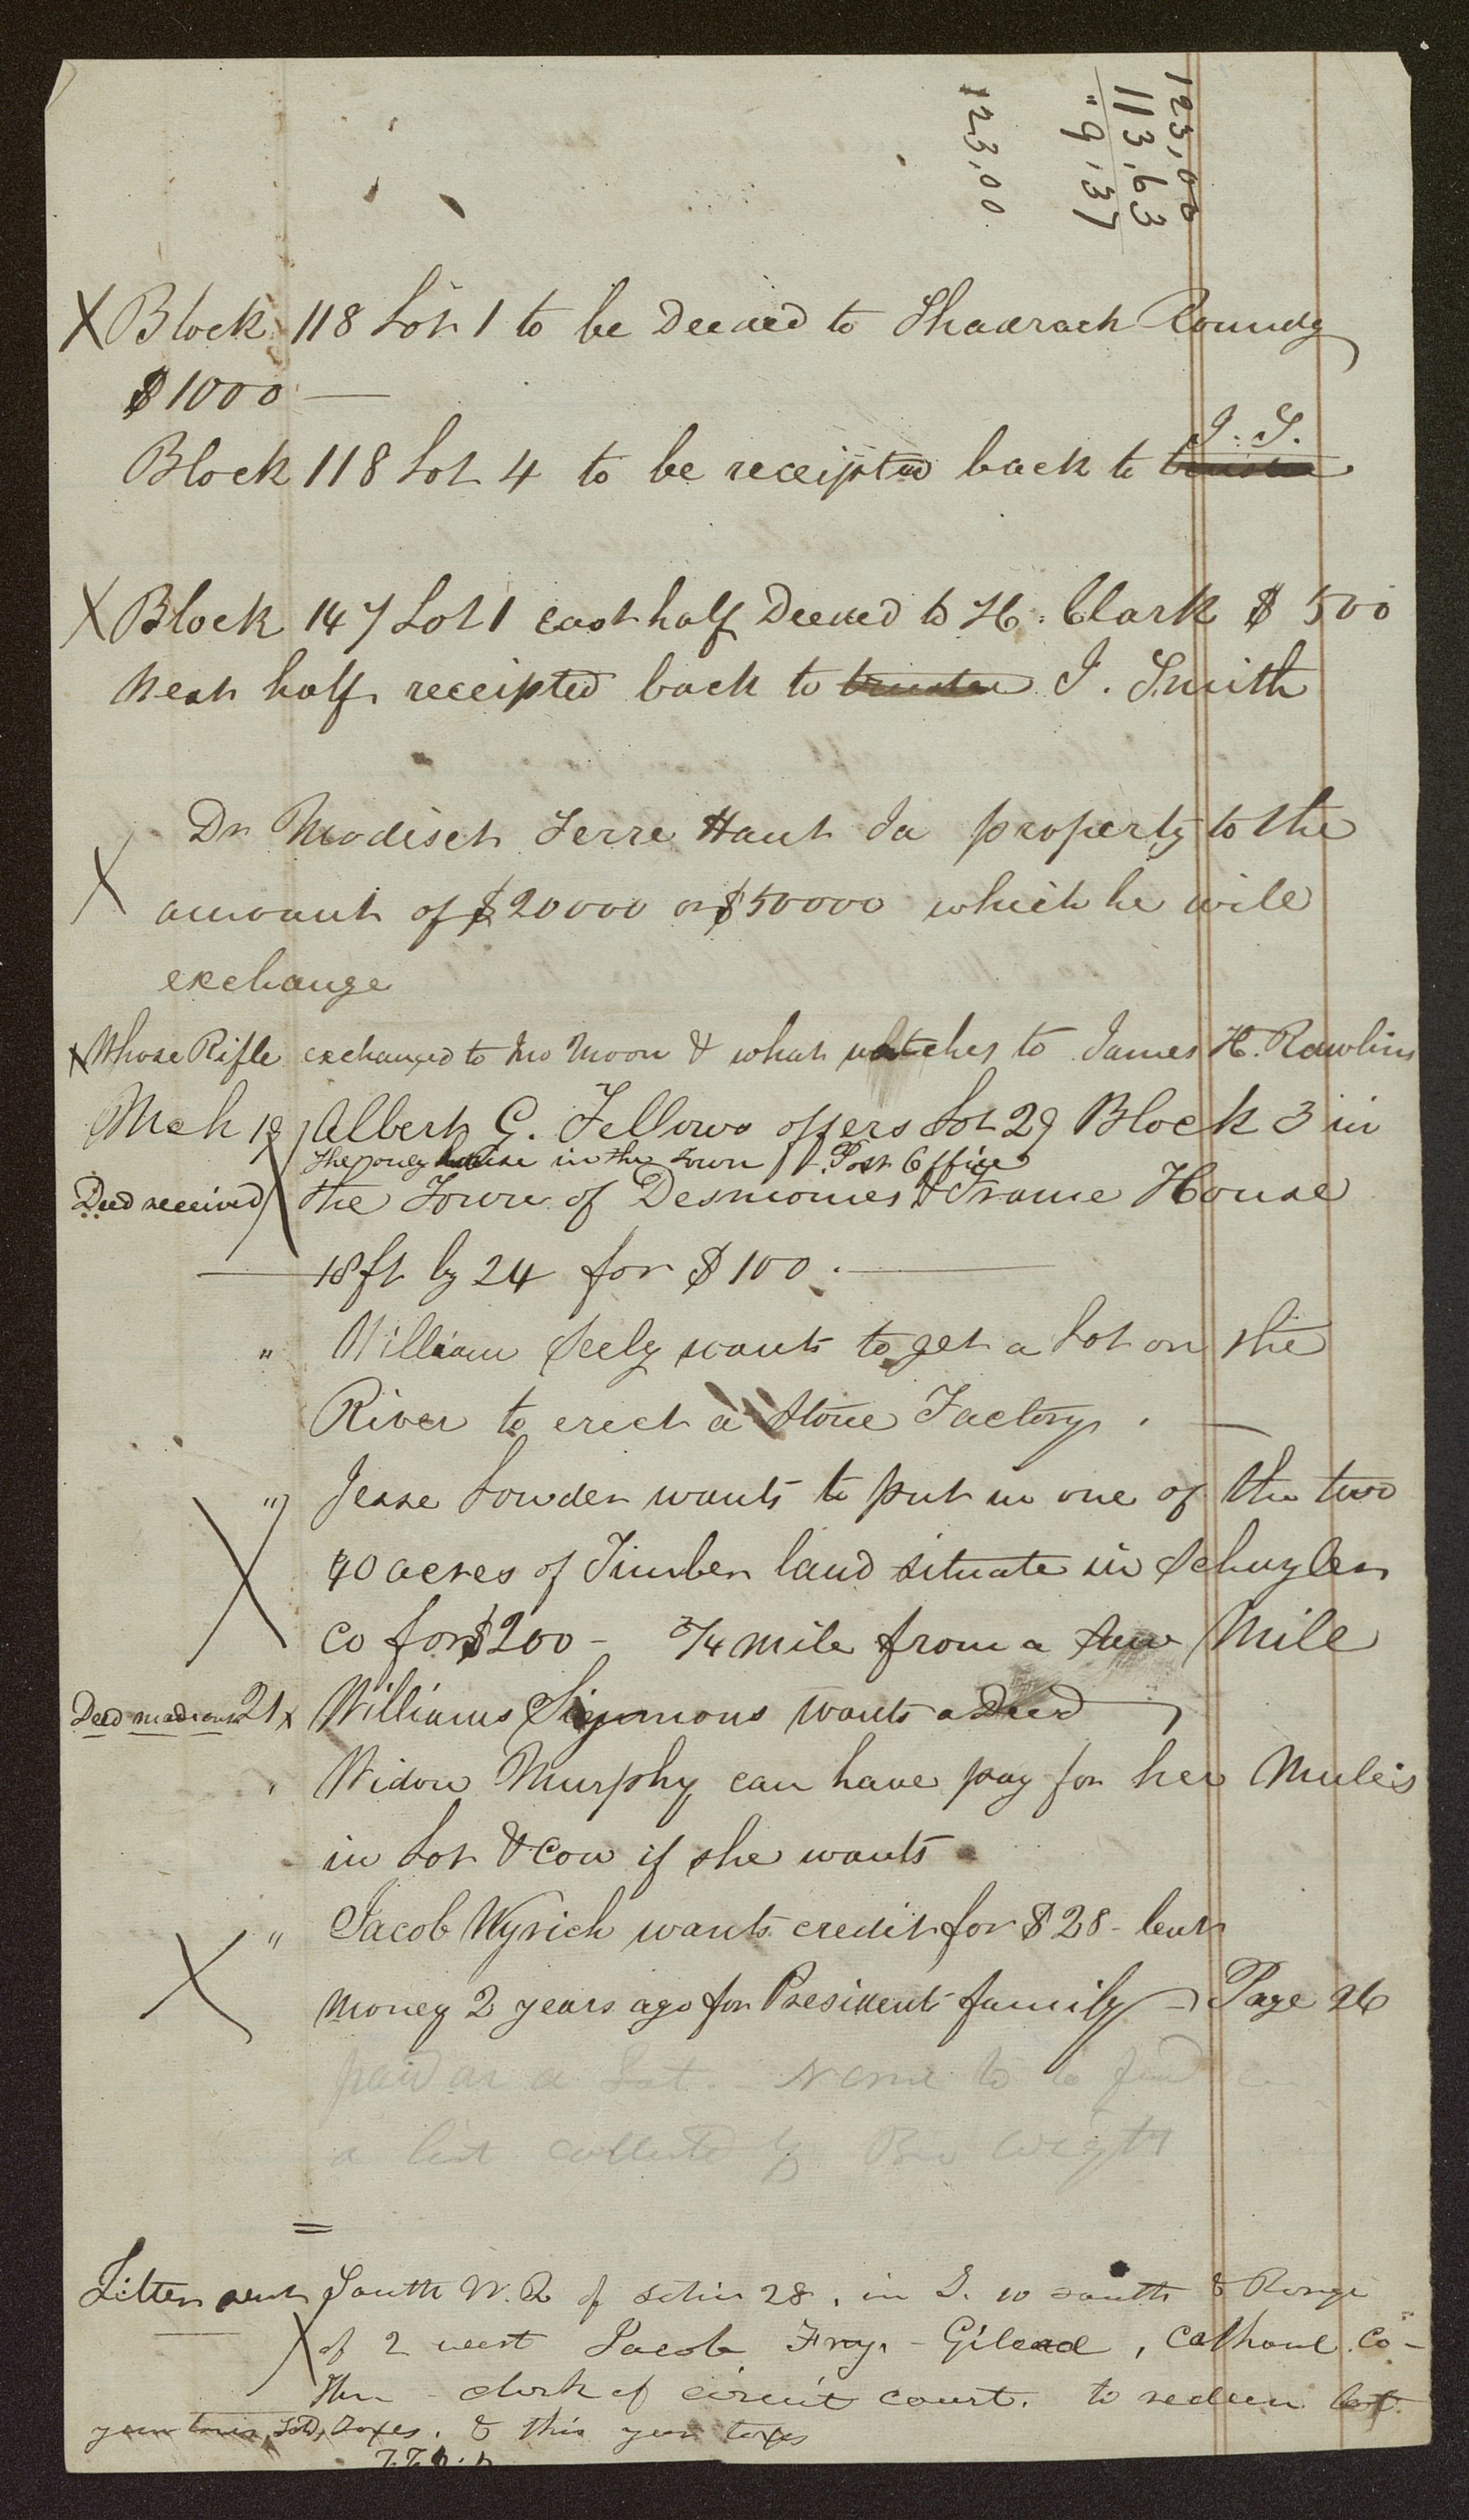 123,00
113,63
" 9,37
123,00
X Block 118 Lot 1 to be Deeded to Shadrach Roundy
$1000 —
J. S.
Block 118 Lot 4 to be receipted back to trustee
X Block 147 Lot 1 east half Deeded to H. Clark $ 500
West half receipted back to trustee J. Smith
Dr Modisett Terre Haut Ia property to the
X amount of $20000 or $50000 which he will
exchange
X Whose Rifle exchanged to Mo Moon & what watches to James H. Rawlins
Mch 19, Albert G. Fellows offers Lot 29 Block 3 in
the only house in the Town / Post Office
Deed received X the Town of Desmoines & Frame House
18 ft by 24 for $100. —
" William Seely wants to get a Lot on the
River to erect a Stone Factory. —
" Jesse Lowder wants to put in one of the two
X 40 acres of Timber land situate in Schuyler
Co for $200 - 3/4 mile from a saw Mile
Deed made out 21 x Williams Simmons wants a Deed —
" Widow Murphy can have pay for her Mules
in Lot & Cow if she wants
" Jacob Wyrich wants credit for $28 - lent
X money 2 years ago for President family - Page 26
paid on a Lot. - Name to be found in
a list collected by Bro Wight
=
Letter sent South W. Q of section 28, in T. 10 south & Range
X of 2 west Jacob Fry. - Gilead, Calhoun Co -
Ills - clerk of circuit court. to redeem last
year taxes, Sold, Taxes. & this year taxes